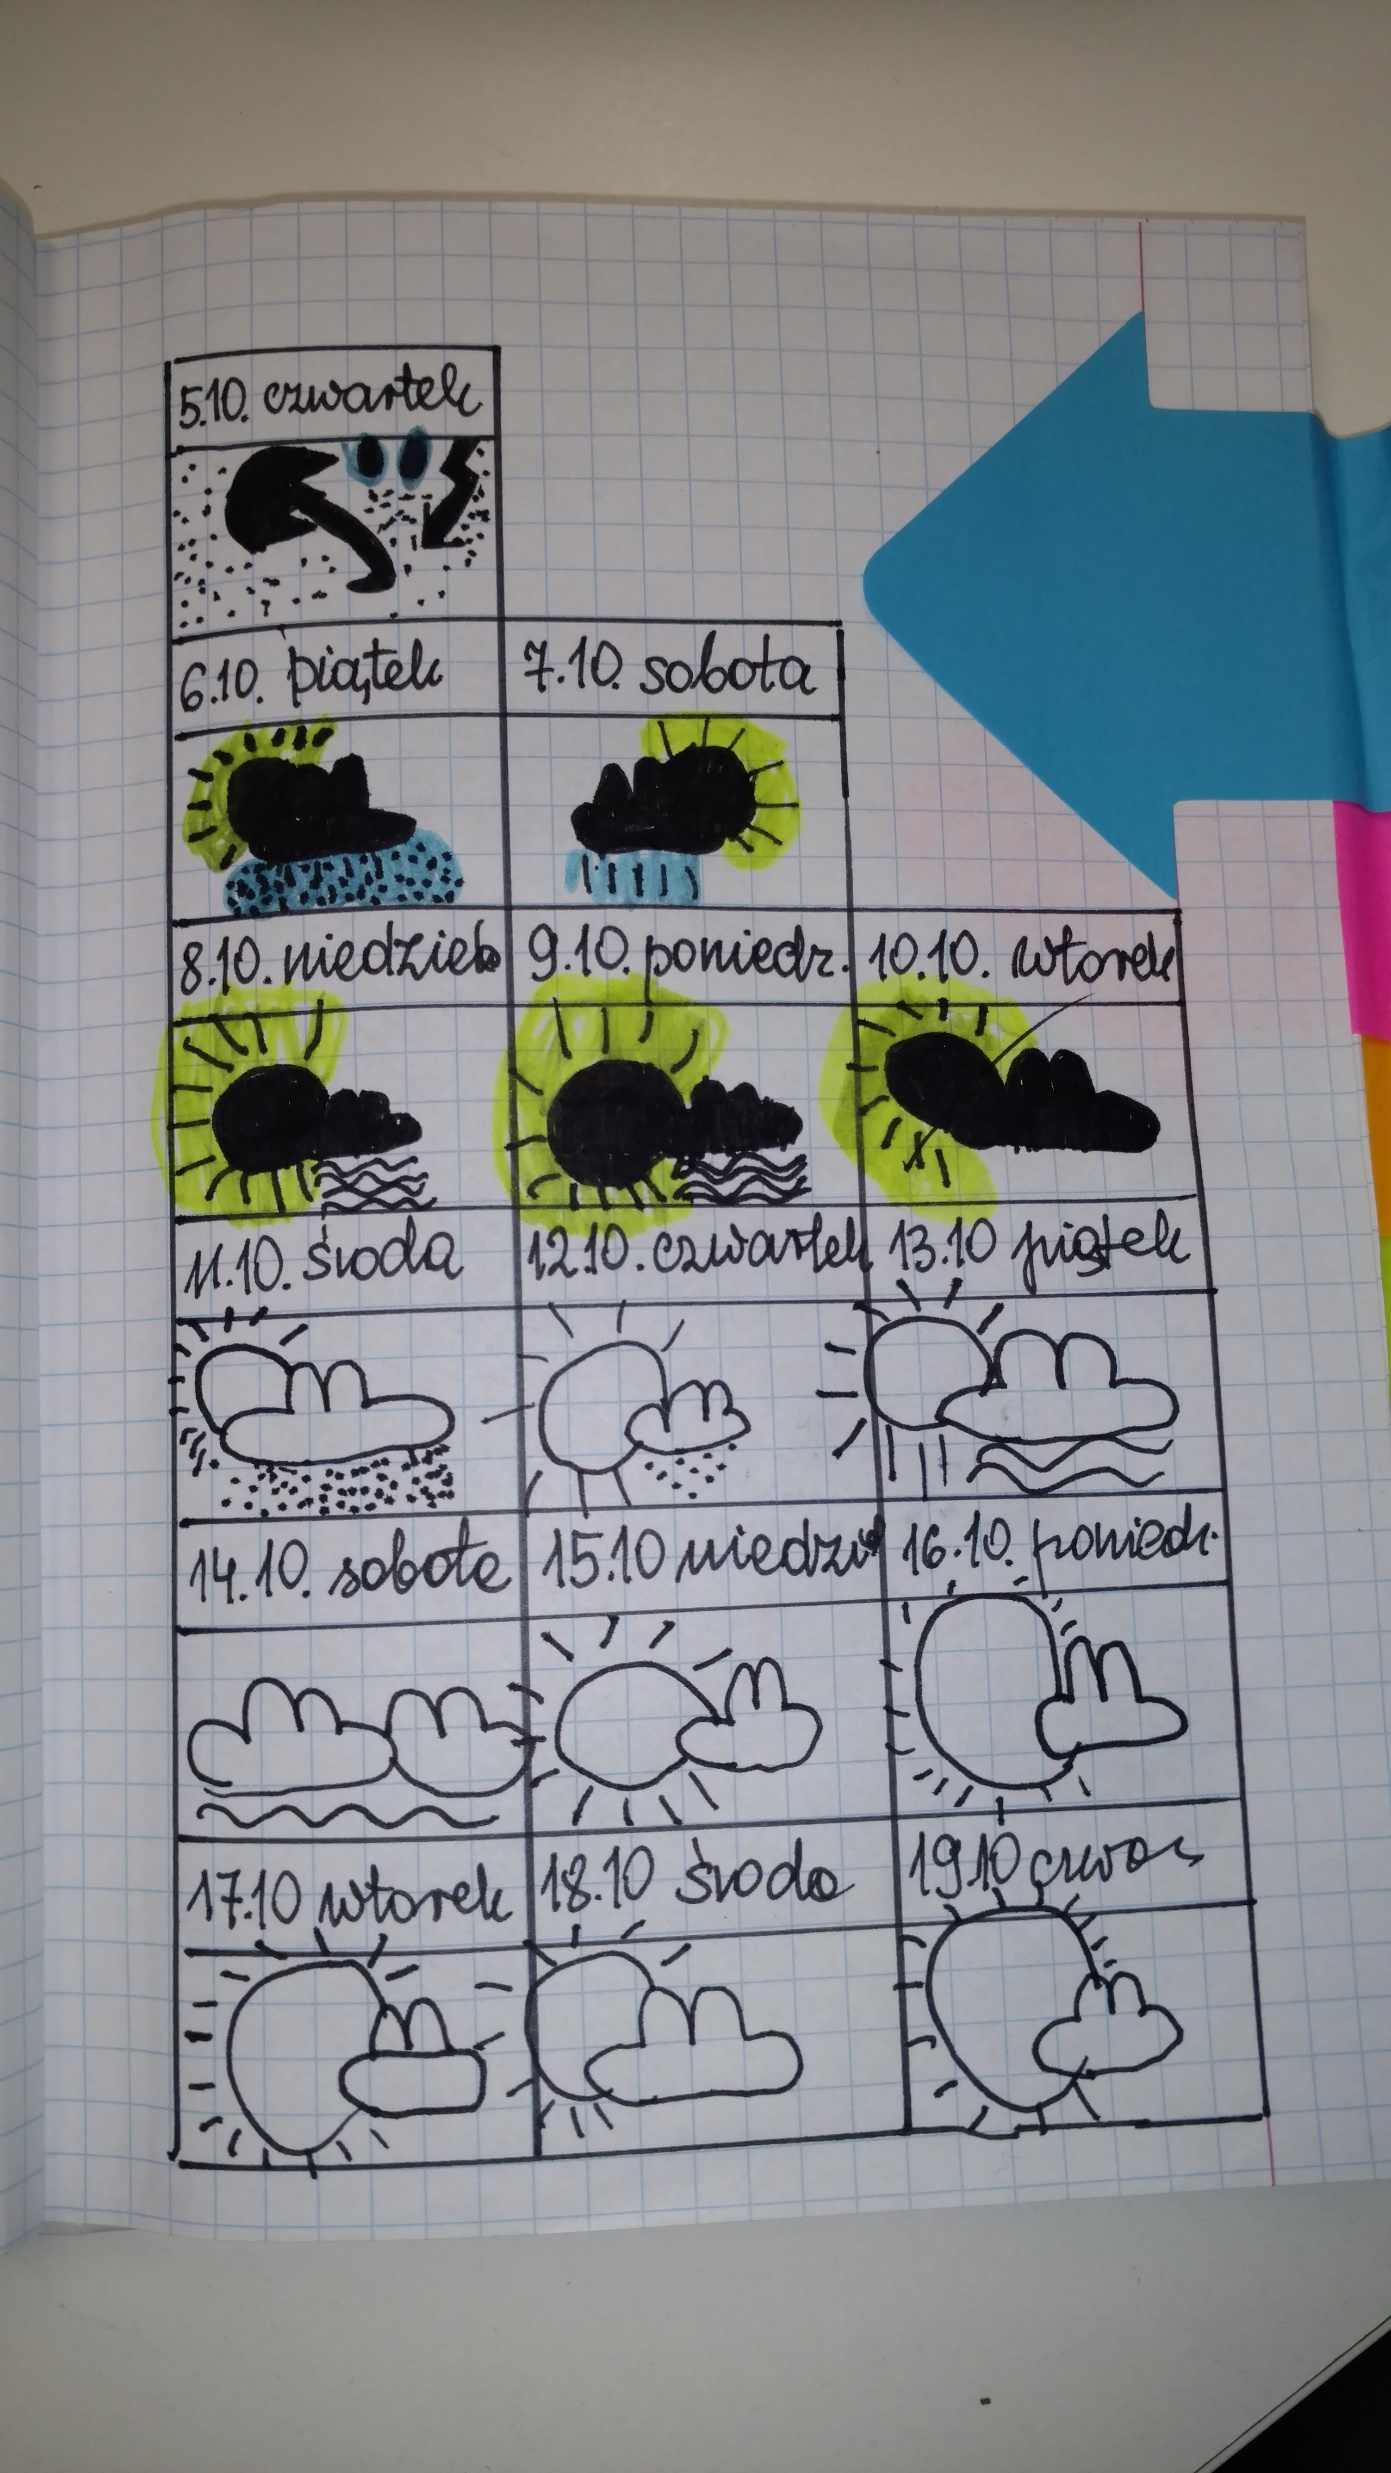 5.10. czwartek
6.10. piątek
7.10. sobota
8.10. niedziela
9.10. poniedz.
10.10. wtorek
11.10. środa
12.10. czwartek
13.10 piątek
14.10. sobota
15.10 niedzi
16.10. poniedz.
17.10 wtorek
18.10 środa
19.10 czwar